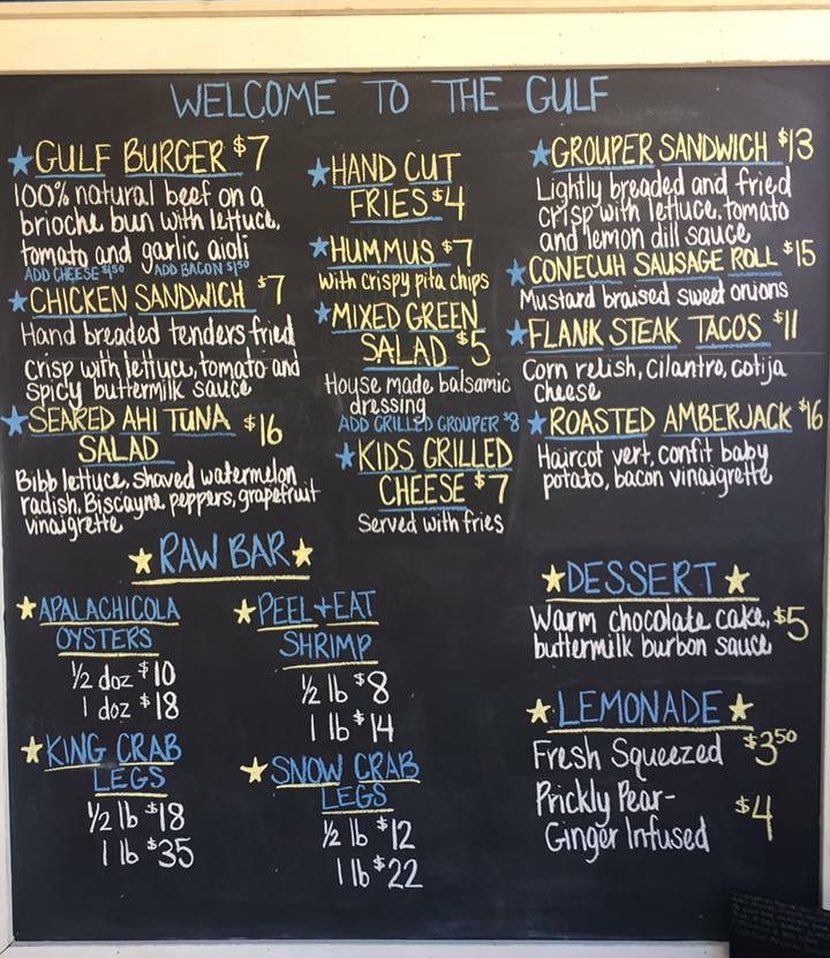 WELCOME TO THE GULF
GULF BURGER $7
100% natural beef on a
brioche bun with lettuce,
tomato and garlic aioli
ADD CHEESE $1.50 ADD BACON $1.50
CHICKEN SANDWICH $7
Hand breaded tenders fried
crisp with lettuce, tomato and
spicy buttermilk sauce
SEARED AHI TUNA
SALAD $16
Bibb lettuce, shaved watermelon
radish, Biscayne peppers, grapefruit
vinaigrette
HAND CUT
FRIES $4
HUMMUS $7
with crispy pita chips
MIXED GREEN
SALAD $5
House made balsamic
dressing
ADD GRILLED GROUPER $8
KIDS GRILLED
CHEESE $7
Served with fries
GROUPER SANDWICH $13
Lightly breaded and fried
crisp with lettuce, tomato
and lemon dill sauce
CONECUH SAUSAGE ROLL $15
Mustard braised sweet onions
FLANK STEAK TACOS $11
Corn relish, Cilantro, cotija
cheese
ROASTED AMBERJACK $16
Haircot vert, confit baby
potato, bacon vinaigrette
RAW BAR
APALACHICOLA
OYSTERS
1/2 doz $10
1 doz $18
KING CRAB
LEGS
1/2 lb $18
1 lb $35
PEEL + EAT
SHRIMP
1/2 lb $8
1 lb $14
SNOW CRAB
LEGS
1/2 lb $12
1 lb $22
DESSERT
Warm chocolate cake, $5
buttermilk burbon sauce
LEMONADE
Fresh Squeezed $3.50
Prickly Pear-
Ginger Infused $4